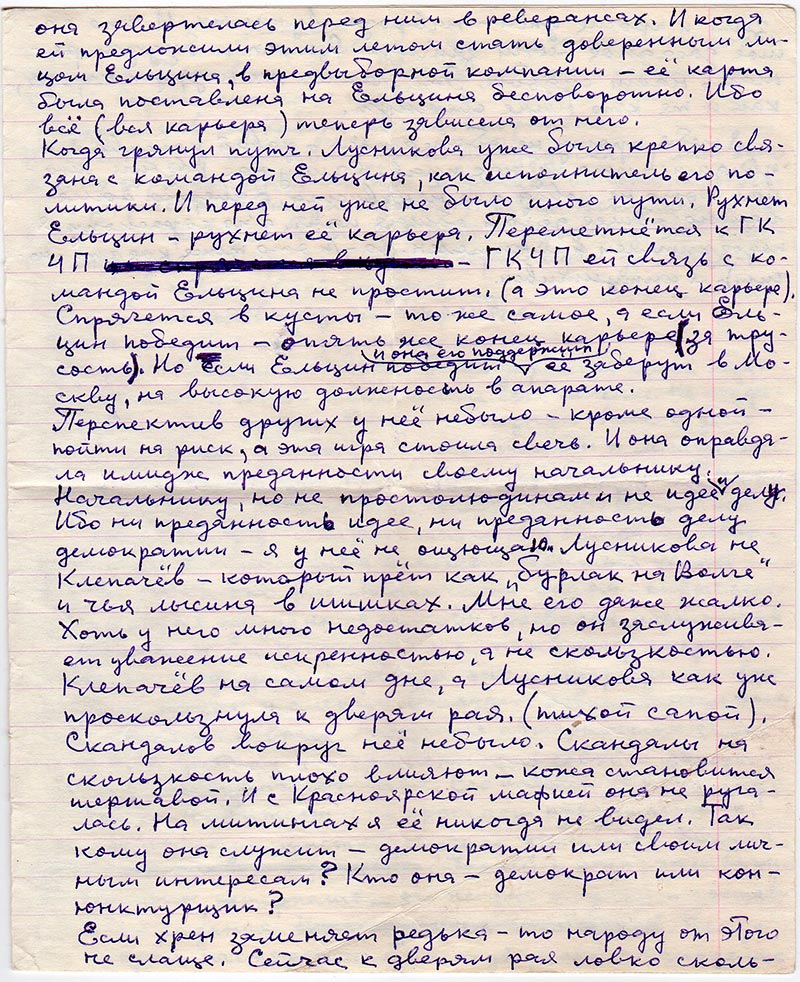 она завертелась перед ним в реверансах. И когда
ей предложили этим летом стать доверенным ли-
цом Ельцина, в предвыборной компании – её карта
была поставлена на Ельцина бесповоротно. Ибо
всё (вся карьера) теперь зависела от него.
Когда грянул путч. Лусникова уже была крепко свя-
зана с командой Ельцина, как исполнитель его по-
литики. И перед ней уже не было иного пути. Рухнет
Ельцин – рухнет её карьера. Переметнётся к ГК
ЧП – ГКЧП ей связь с ко-
мандой Ельцина не простит. (а это конец карьере).
Спрячется в кусты – то же самое, а если Ель-
цин победит – опять же конец карьере (за тру-
сость). Но если Ельцин победит и она его поддержит её заберут в Мо-
скву, на высокую должность в аппарате.
Перспектив других у неё небыло – кроме одной –
пойти на риск, а эта игра стоила свечь. И она оправда-
ла имидж преданности своему начальнику.
Начальнику, но не простолюдинам и не идее и делу.
Ибо ни преданность идее, ни преданность делу
демократии – я у неё не ощющаю. Лусникова не
Клепачёв – который прёт как „бурлак на Волге"
и чья лысина в шишках. Мне его даже жалко.
Хоть у него много недостатков, но он заслужива-
ет уважение искренностью, а не скользкостью.
Клепачёв на самом дне, а Лусникова как уж
проскользнула к дверям рая. (тихой сапой).
Скандалов вокруг неё небыло. Скандалы на
скользкость плохо влияют – кожа становится
шершавой. И с Красноярской мафией она не руга-
лась. На митингах я её никогда не видел. Так
кому она служит – демократии или своим лич-
ным интересам? Кто она – демократ или кон-
юнктурщик?
Если хрен заменяет редька – то народу от этого
не слаще. Сейчас к дверям рая ловко сколь-